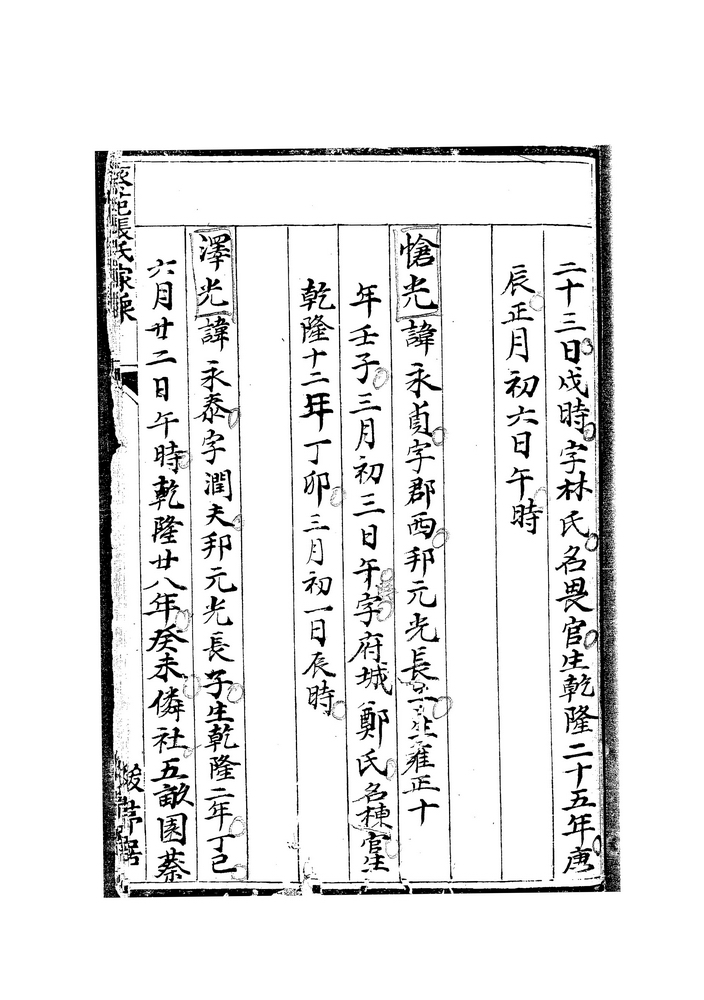 二十三日戌時字林氏名畏官生乾隆二十五年庚
辰正月初六日午時
愴光諱永貞字郡西邦元光長子生雍正十
年壬子三月初三日午字府城鄭氏名棟官生
乾隆十二年丁卯三月初一日辰時
澤光諱永泰字潤夫邦元光長子生乾隆二年丁巳
六月廿二日午時乾隆廿八年癸未儕社五畝園蔡
張氏家乘